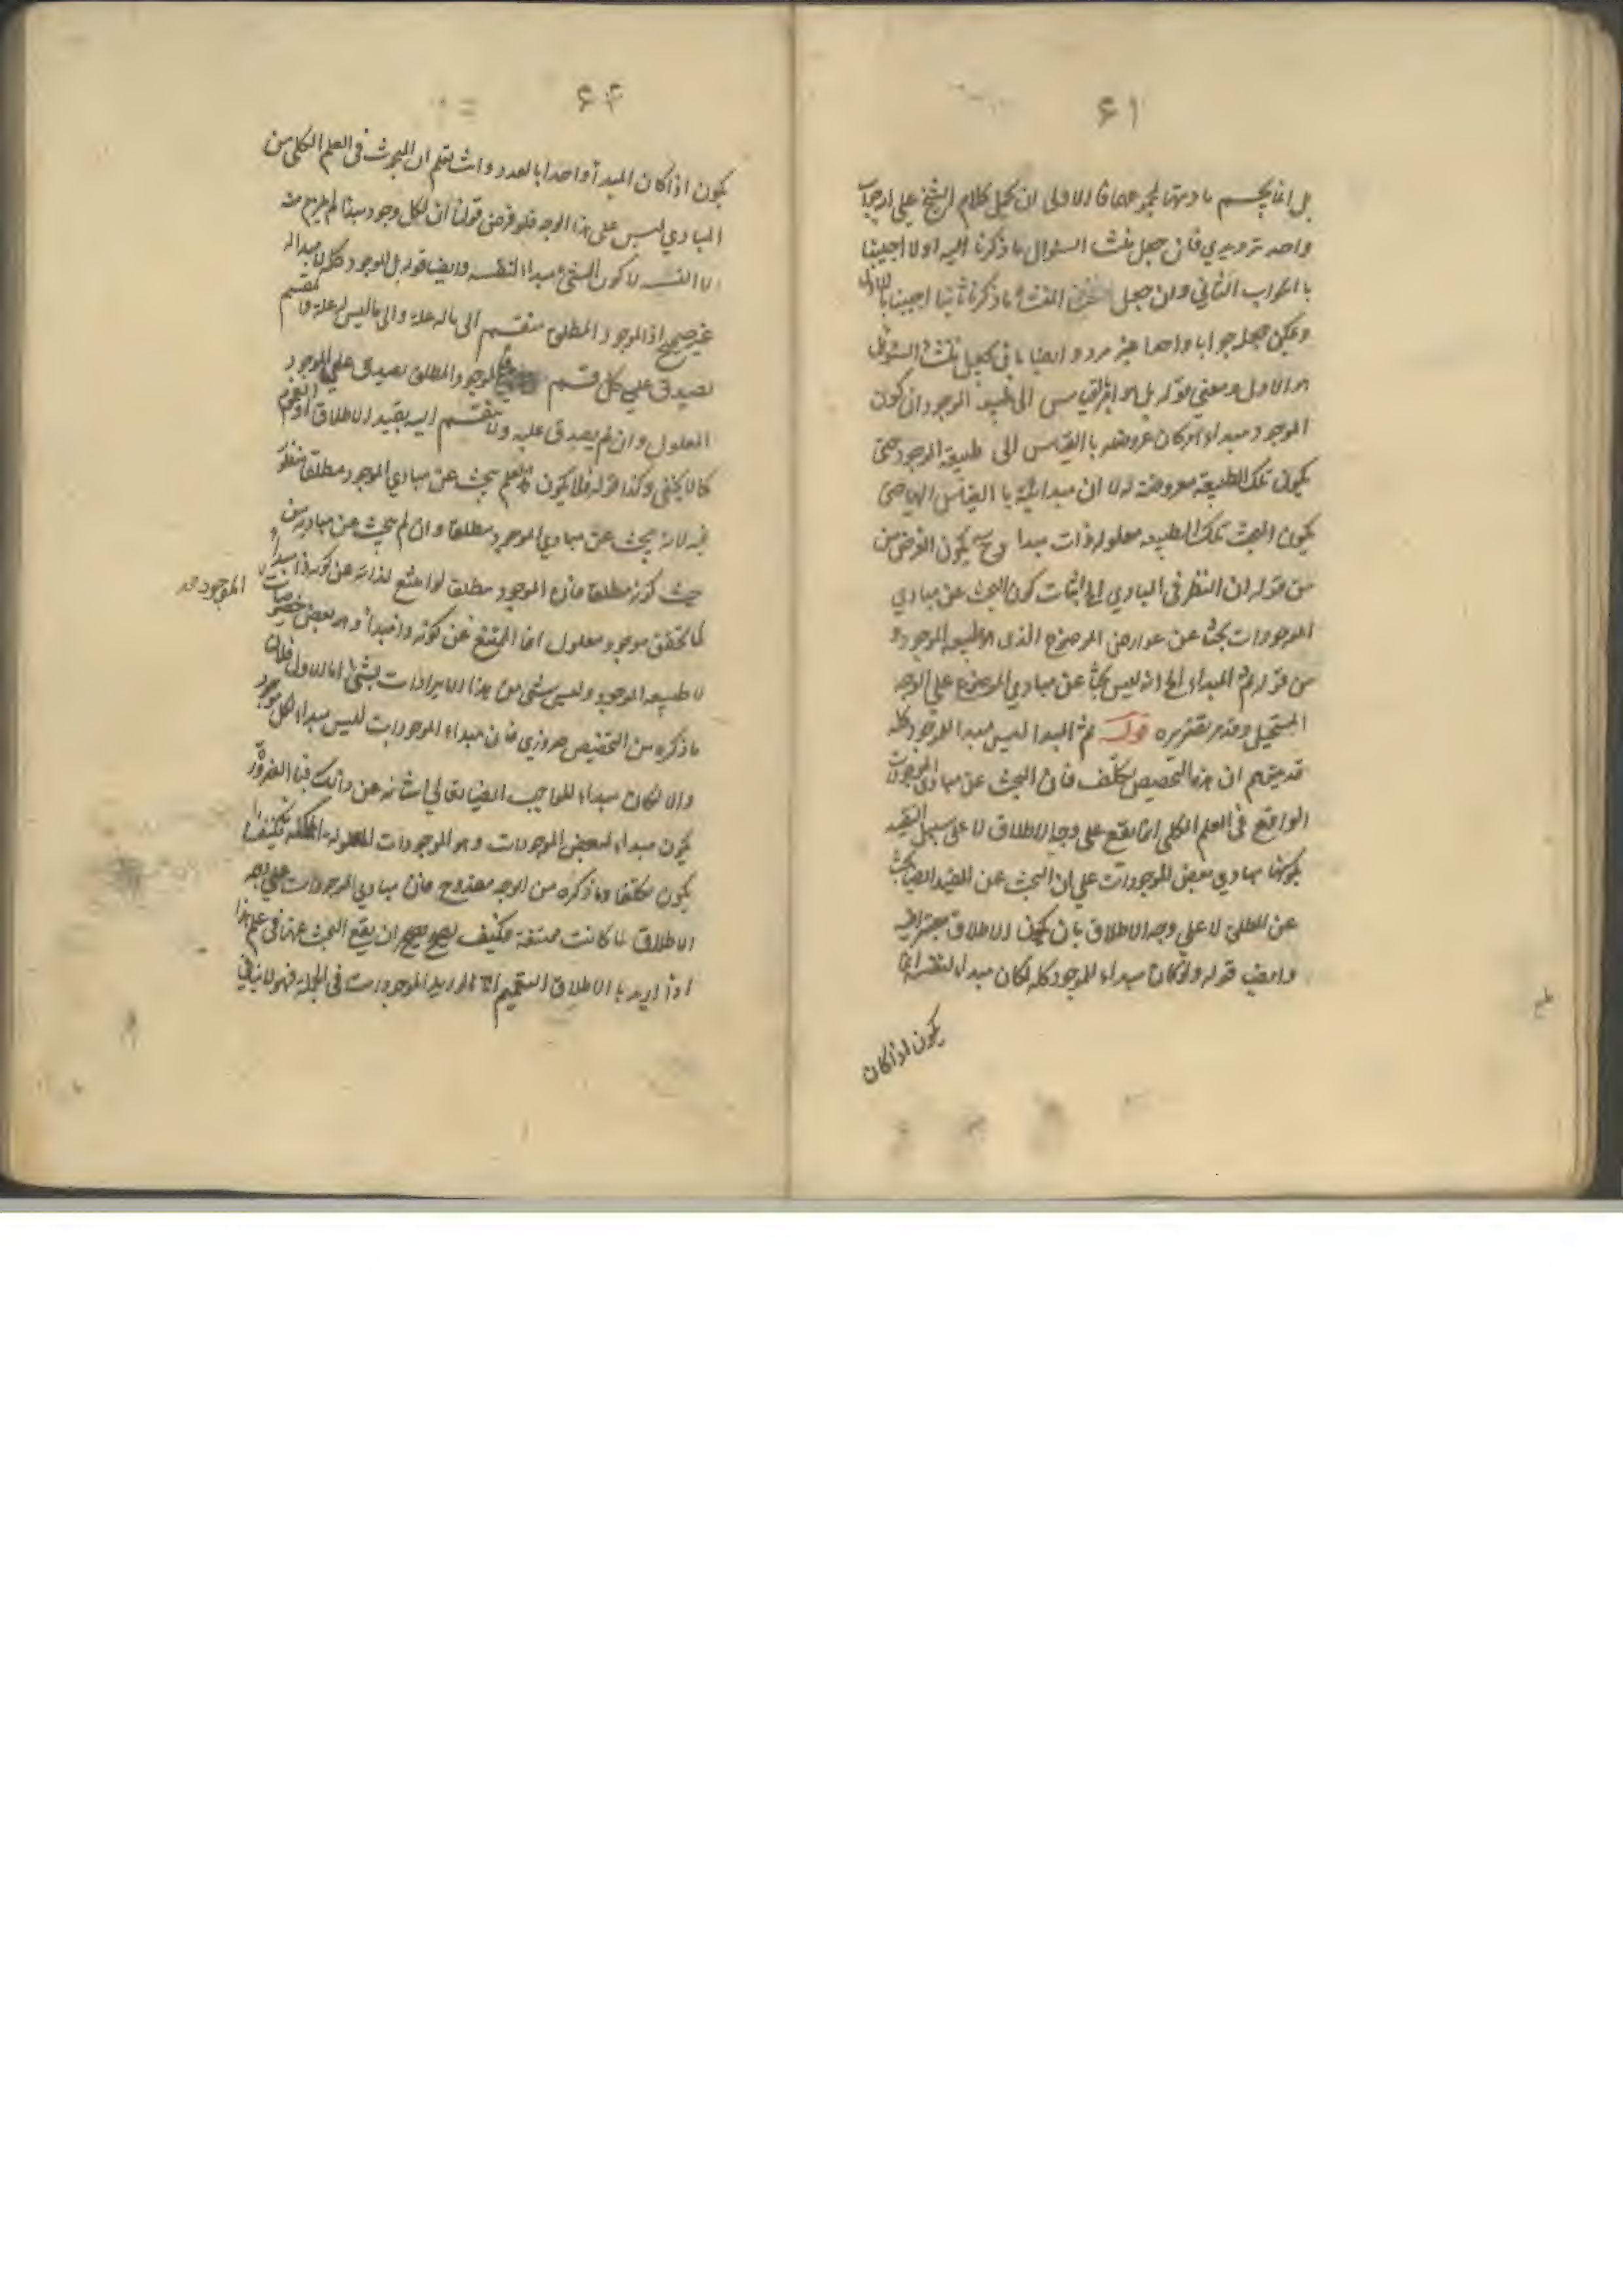 ٤١
بل انما يحسم مادتهما مجموعهما فالاولى ان يحمل كلام الشيخ على انه جواب
واحد ترديدي فان جعل منشأ السؤال ما ذكرنا اليه اولا اجيبنا
بالجواب الثاني وان جعل المنشأ ما ذكرنا ثانيا اجيبنا بالاول
ويمكن جعله جوابا واحدا غير مردد ايضا بان يجعل منشأ السؤال
هو الاول ومعنى قوله بل هو بالقياس الى طبيعة الموجود ان كون
الموجود مبداء امر كان عروضه بالقياس الى طبيعة الموجود حتى
يكون تلك الطبيعة معروضة له لا ان مبدائية بالقياس اليها حتى
يكون البحث تلك الطبيعة معلولة ذات مبدا وح يكون الغرض من
من قوله ان النظر في المبادي الخ اثبات كون البحث عن مبادي
الموجودات بحثا عن عوارض الموضوع الذي هو طبيعة الموجود و
من قوله ثم المبداء الخ انه ليس بحثا عن مبادي الموضوع على الوجه
المستحيل وقد مر تقريره قوله ثم المبدا ليس مبدا للموجود كله
قد يتوهم ان هذا التخصيص تكلف فان البحث عن مبادي الموجودات
الواقع في العلم الكلي انما يقع على وجه الاطلاق لا على سبيل التقييد
بكونها مبادي بعض الموجودات على ان البحث عن المقيد ايضا بحث
عن المطلق لا على وجه الاطلاق بان يكون الاطلاق معتبرا فيه
وايضا قوله ولو كان مبداء للموجود كله لكان مبداء لنفسه انما
يكون اذا كان
٤٢
يكون اذا كان المبدأ واحدا بالعدد وانت تعلم ان البحوث في العلم الكلي من
المبادي ليس على هذا الوجه فلو فرض قولنا ان لكل وجود مبدا لم يلزم منه
الا التسلسل لا كون الشيء مبداء لنفسه وايضا قوله بل الموجود كله لا مبدا له
غير صحيح اذ الموجود المطلق منقسم الى ما له علة والى ما ليس له علة والمقسم
يصدق على كل قسم فالموجود المطلق يصدق على الموجود
المعلول وان لم يصدق عليه ولا ينقسم اليه بقيد الاطلاق او العموم
كما لا يخفى وكذا قوله فلا يكون هذا العلم يبحث عن مبادي الموجود مطلقا منظور
فيه لانه يبحث عن مبادي الموجود مطلقا وان لم يبحث عن مباديه من
حيث كونه مطلقا فان الموجود مطلقا لو امتنع لذاته عن كونه ذا مبدأ
لما تحقق موجود معلول انما الممتنع عن كونه ذا مبدأ هو بعض خصوصيات الموجود صح
لا طبيعة الموجود وليس شئ من هذه الايرادات بشئ اما الاول فلان
ما ذكره من التخصيص ضروري فان مبداء الموجودات ليس مبداء لكل موجود
والا لكان مبداء للواجب ايضا تعالى شانه عن ذلك فبالضرورة
يكون مبداء لبعض الموجودات وهو الموجودات المعلولة الممكنة فكيف
يكون تكلفا وما ذكره من الوجه مقدوح فان مبادي الموجودات على وجه
الاطلاق لما كانت ممتنعة فكيف يصح ان يقع البحث عنها في علم هذا
اذا اريد بالاطلاق التعميم اما لو اريد الموجودات في الجملة فهو لا ينافي